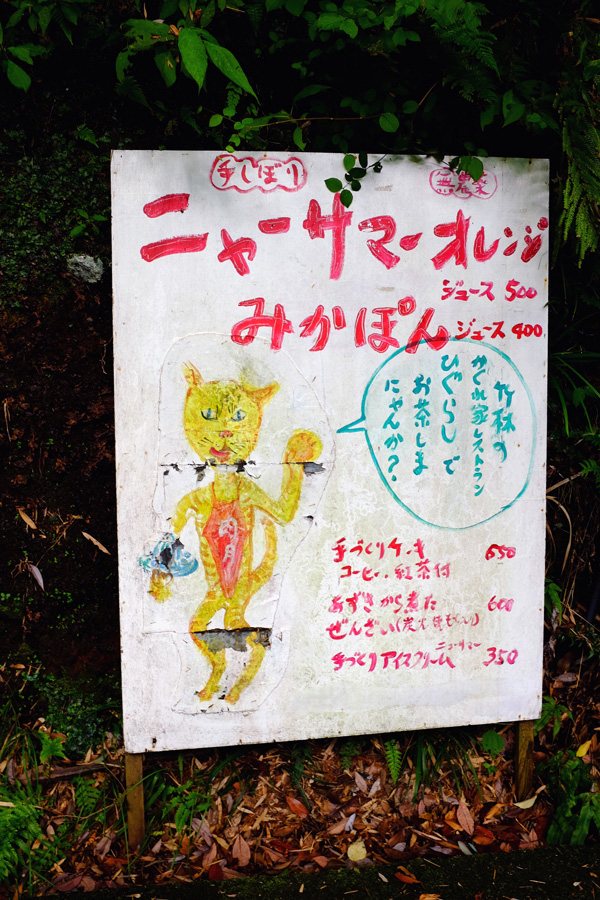 手しぼり
無農薬
ニャーサマーオレンジ
ジュース 500
みかぽん ジュース 400
竹林の
かくれ家レストラン
ひぐらしで
お茶しま
にゃんか?
手づくりケーキ 650
コーヒー、紅茶付
あずきから煮た 600
ぜんざい(炭火焼もち入り)
ニューサマー
手づくりアイスクリーム 350